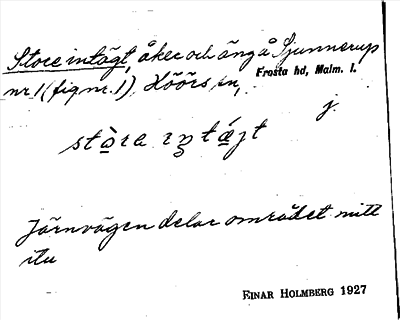 Store intägt, åker och äng å Sjunnerup
nr 1 (fig nr. 1). Höörs sn, Frosta hd, Malm. l.
j.
Järnvägen delar området mitt
itu
EINAR HOLMBERG 1927